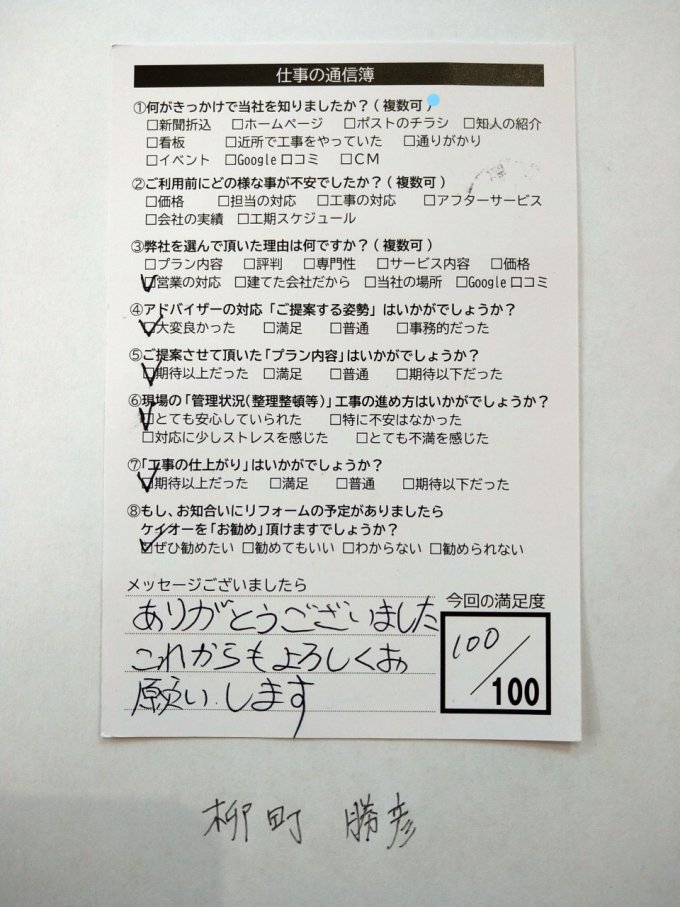 仕事の通信簿
①何がきっかけで当社を知りましたか?(複数可)
□新聞折込 □ホームページ □ポストのチラシ □知人の紹介
□看板 □近所で工事をやっていた □通りがかり
□イベント □Google口コミ □CM
②ご利用前にどの様な事が不安でしたか?(複数可)
□価格 □担当の対応 □工事の対応 □アフターサービス
□会社の実績 □工期スケジュール
③弊社を選んで頂いた理由は何ですか?(複数可)
□プラン内容 □評判 □専門性 □サービス内容 □価格
☑営業の対応 □建てた会社だから □当社の場所 □Google口コミ
④アドバイザーの対応「ご提案する姿勢」はいかがでしょうか?
☑大変良かった □満足 □普通 □事務的だった
⑤ご提案させて頂いた「プラン内容」はいかがでしょうか?
☑期待以上だった □満足 □普通 □期待以下だった
⑥現場の「管理状況(整理整頓等)」工事の進め方はいかがでしょうか?
☑とても安心していられた □特に不安はなかった
□対応に少しストレスを感じた □とても不満を感じた
⑦「工事の仕上がり」はいかがでしょうか?
☑期待以上だった □満足 □普通 □期待以下だった
⑧もし、お知合いにリフォームの予定がありましたら
ケイオーを「お勧め」頂けますでしょうか?
☑ぜひ勧めたい □勧めてもいい □わからない □勧められない
メッセージございましたら
ありがとうございました
これからもよろしくお
願いします
今回の満足度
100/100
柳町 勝彦